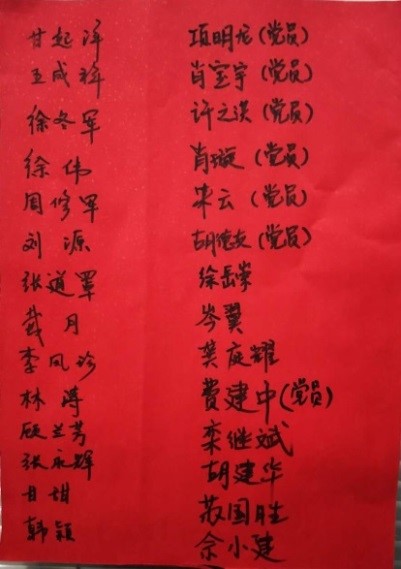 甘起洋
王成祥
徐冬军
徐伟
周修军
刘源
张道军
戴月
李凤珍
林涛
顾兰芳
张永辉
甘甜
韩颖
项明龙(党员)
肖宝宇(党员)
许之洪(党员)
肖璇(党员)
宋云(党员)
胡德友(党员)
徐岳嵘
岑翼
龚庭耀
费建中(党员)
栾继斌
胡建华
国胜
余小建